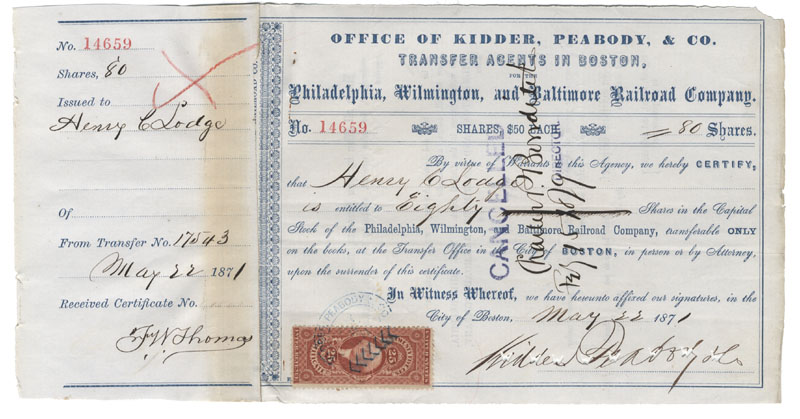 No. 14659
Shares, 80
Issued to
Henry C Lodge
Of
From Transfer No. 17543
May 22 1871
Received Certificate No.
F W Thomas
RAILROAD CO.
OFFICE OF KIDDER, PEABODY, & CO.
TRANSFER AGENTS IN BOSTON,
FOR THE
Philadelphia, Wilmington, and Baltimore Railroad Company.
No. 14659 SHARES, $50 EACH. 80 Shares.
By virtue of Warrants to this Agency, we hereby CERTIFY,
that Henry C Lodge
is entitled to Eighty Shares in the Capital
Stock of the Philadelphia, Wilmington, and Baltimore Railroad Company, transferable ONLY
on the books, at the Transfer Office in the City of BOSTON, in person or by Attorney,
upon the surrender of this certificate.
In Witness Whereof, we have hereunto affixed our signatures, in the
City of Boston, May 22 1871
Kidder Peabody & Co
CANCELLED
DIRECTOR.
PEABODY &
25 25